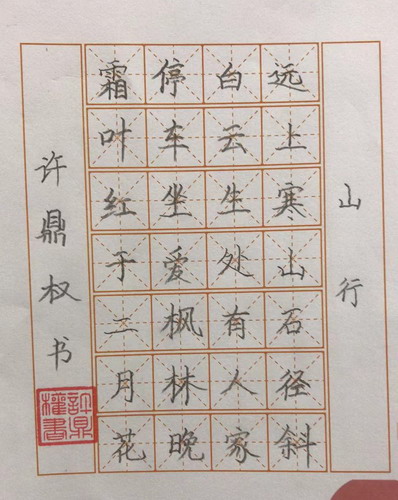 山行
远上寒山石径斜
白云生处有人家
停车坐爱枫林晚
霜叶红于二月花
许鼎权书
許鼎
權書